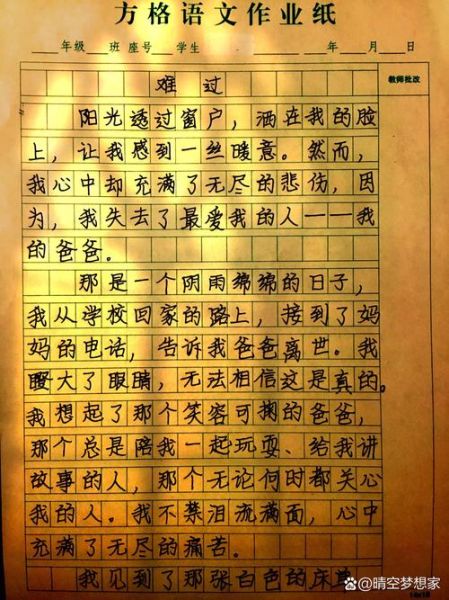 方格语文作业纸
年级 班 座号 学生 年 月 日
难过 教师批改
阳光透过窗户，洒在我的脸
上，让我感到一丝暖意。然而，
我心中却充满了无尽的悲伤，因
为，我失去了最爱我的人——我
的爸爸。
那是一个阴雨绵绵的日子，
我从学校回家的路上，接到了妈
妈的电话，告诉我爸爸离世。我
瞪大了眼睛，无法相信这是真的。
我想起了那个笑容可掬的爸爸，
那个总是陪我一起玩耍、给我讲
故事的人，那个无论何时都关心
我的人。我不禁泪流满面，心中
充满了无尽的痛苦。
我见到了那张白色的床单
@晴空梦想家